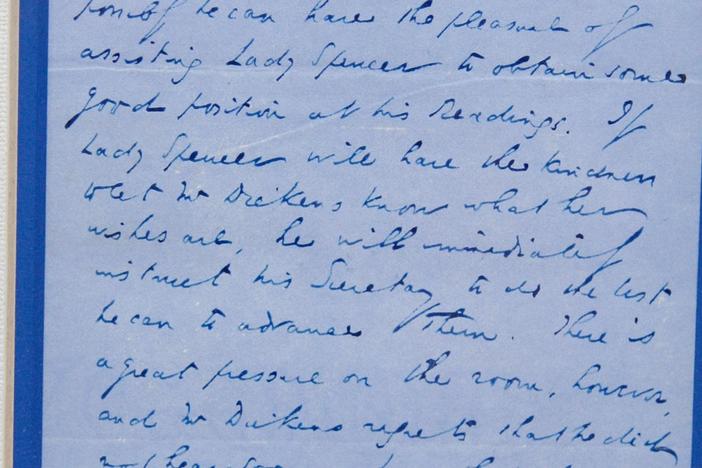 he can have the pleasure of
assisting Lady Spencer to obtain some
good position at his Readings. If
Lady Spencer will have the kindness
to let Mr Dickens know what her
wishes are, he will immediately
instruct his Secretary to do the best
he can to advance them. There is
a great pressure on the room, however,
and Mr Dickens regrets that he did
not hear